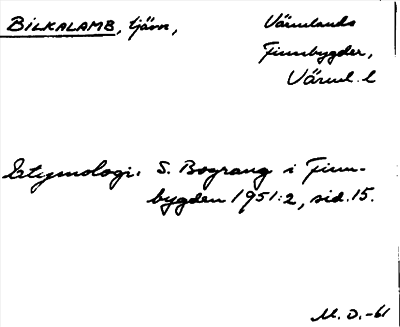 BILKALAMB, tjärn,
Värmlands
Finnbygder,
Värml. l
Etymologi. S. Bograng i Finn-
bygden 1951:2, sid. 15.
M. O. -61